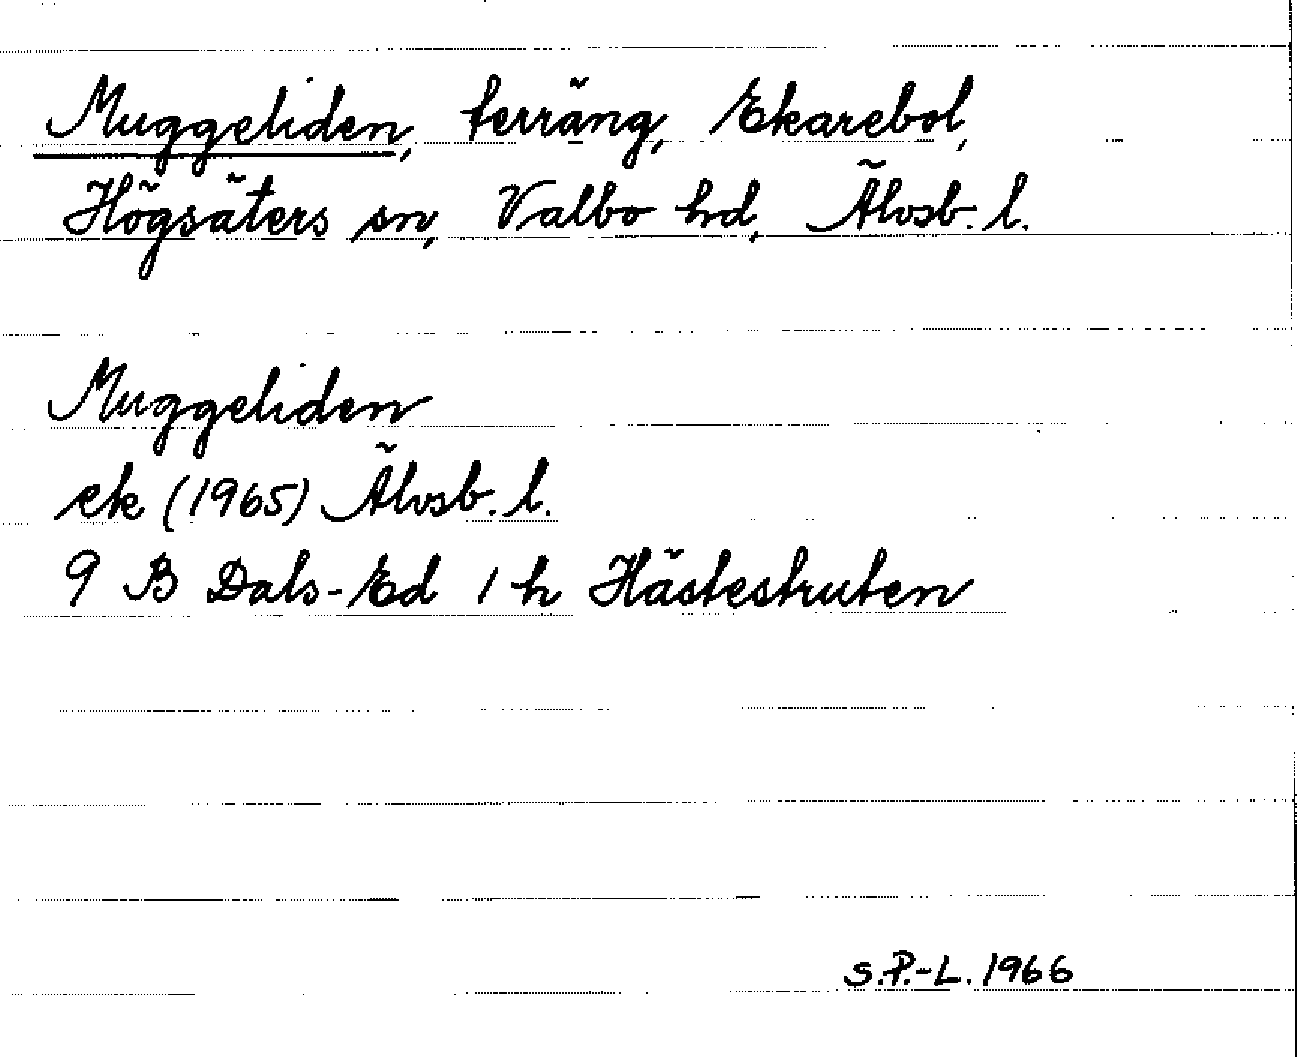 Muggeliden, terräng, Ekarebol,
Högsäters sn, Valbo hd, Älvsb. l.
Muggeliden
ek (1965) Älvsb. l.
9 B Dals-Ed 1 h Hästestruten
S.P.-L. 1966